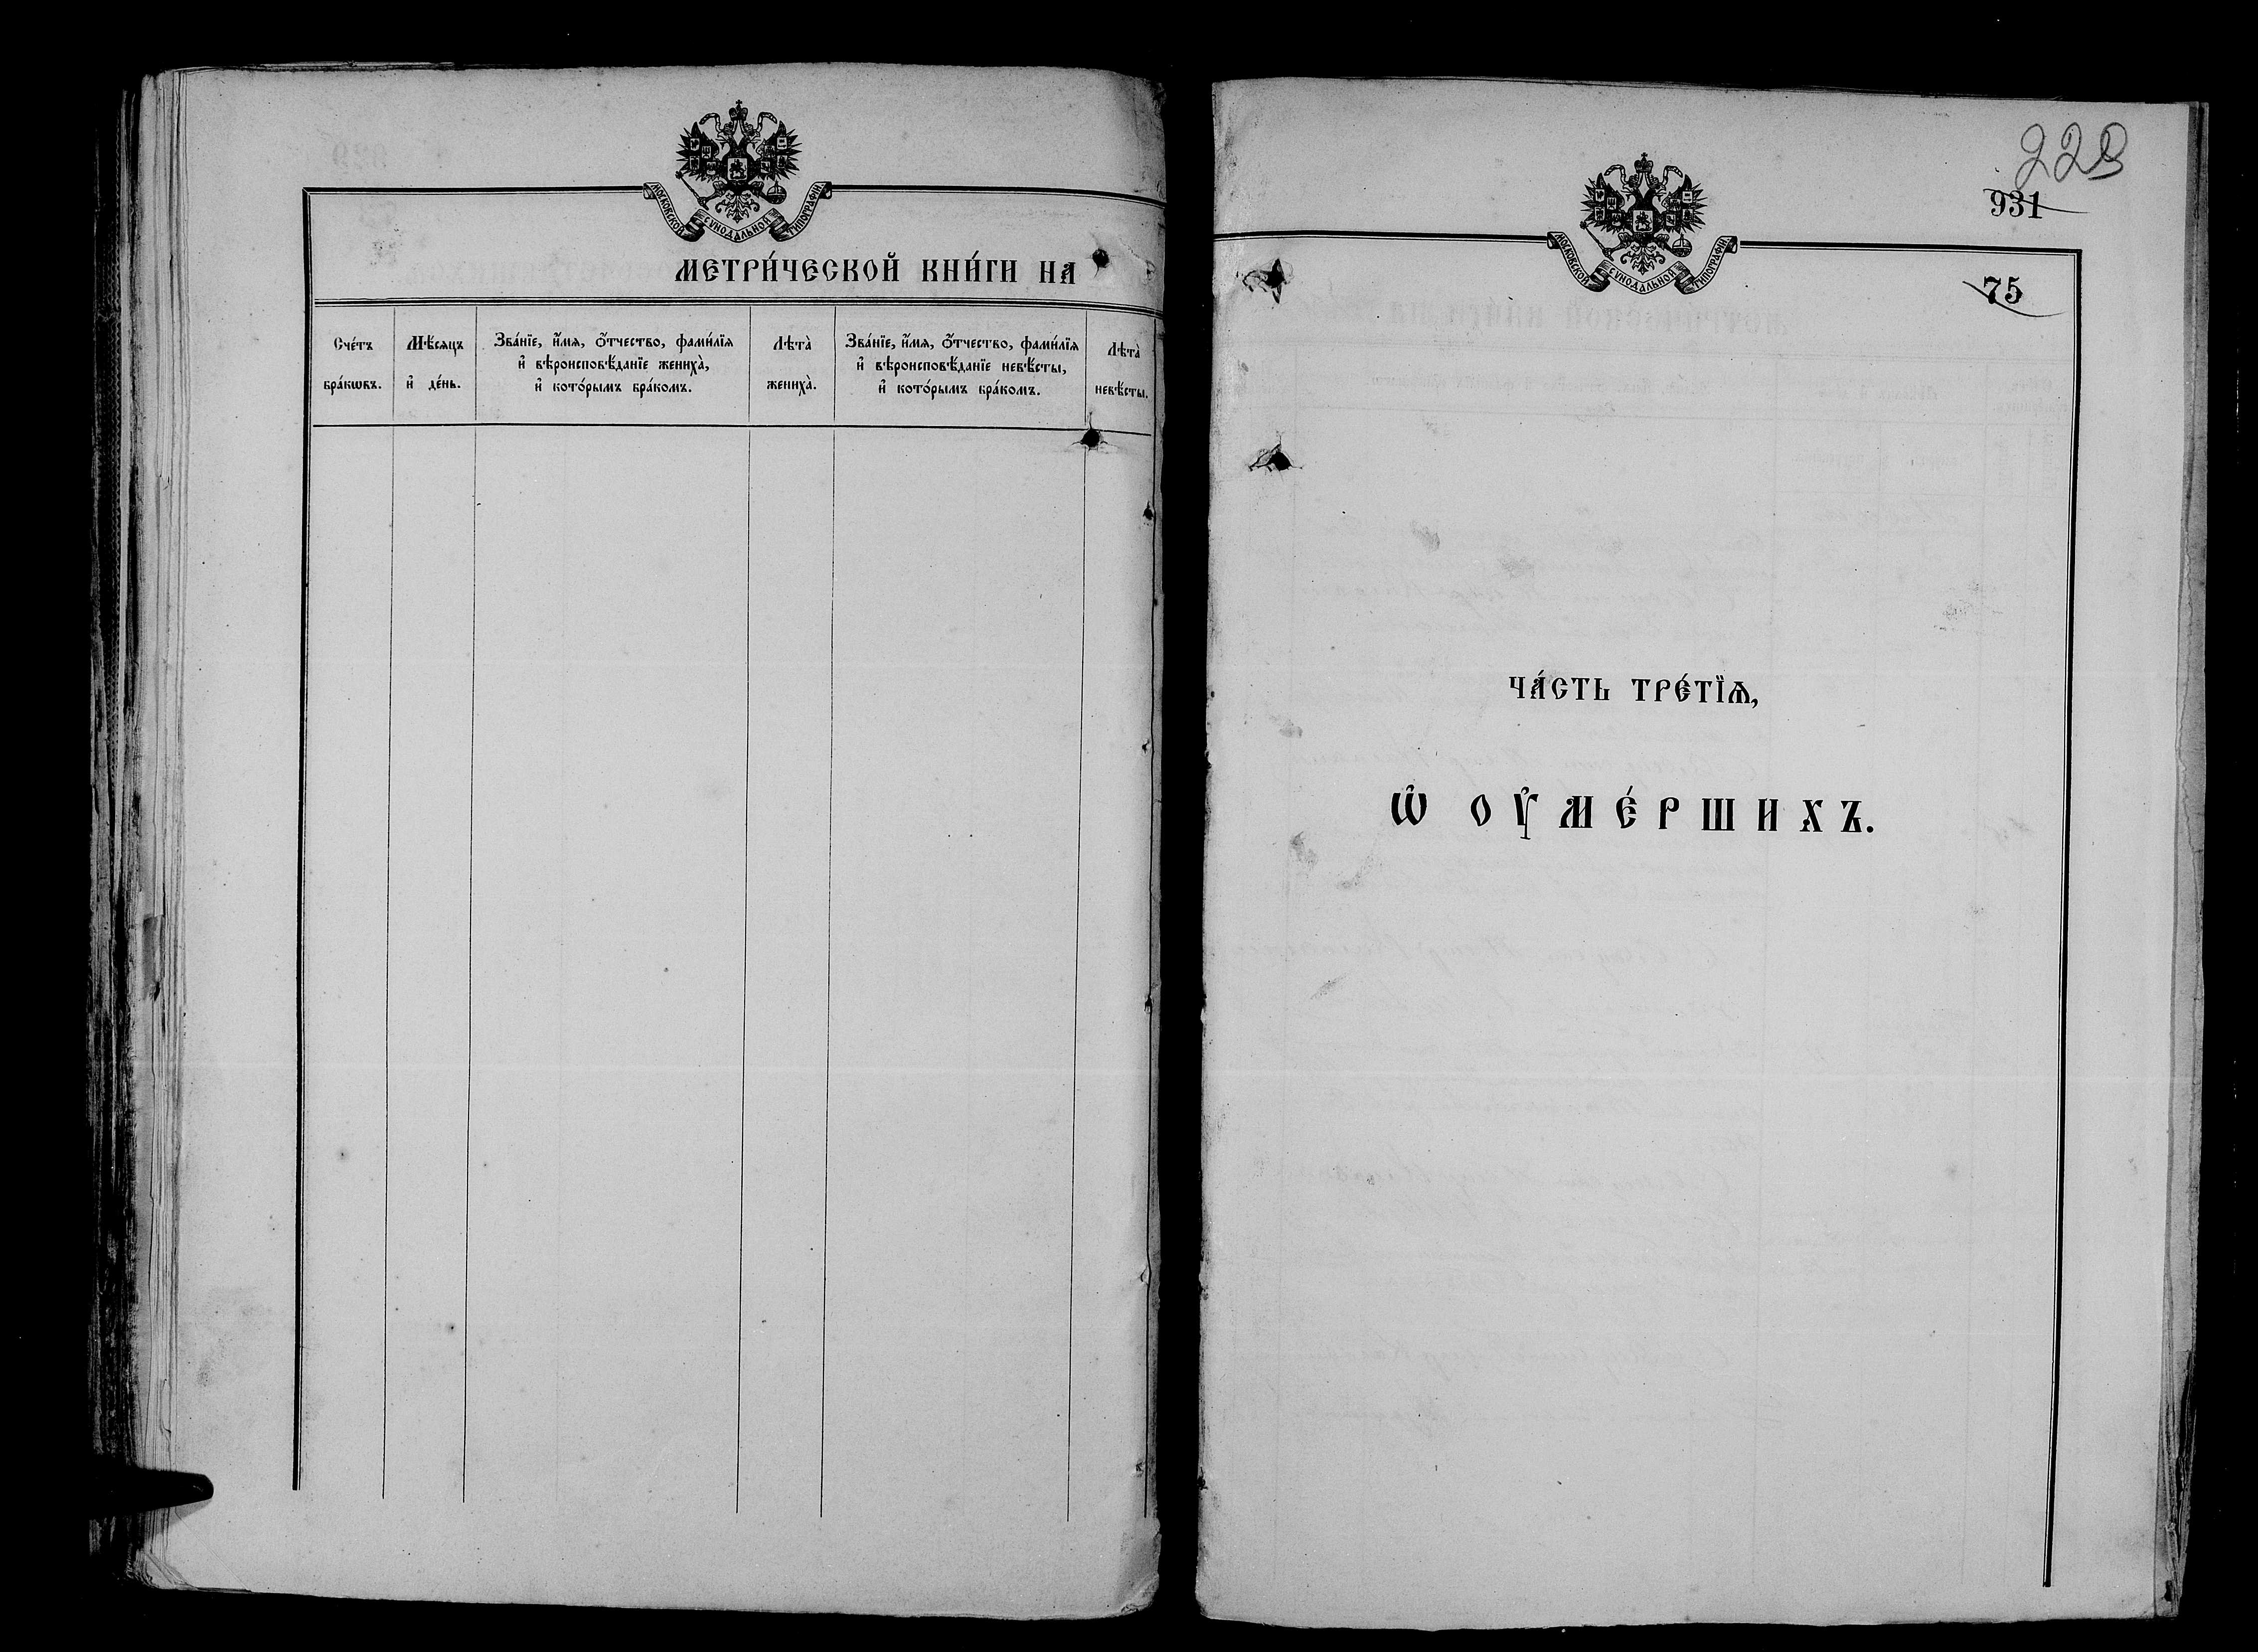 МОСКОВСКОЙ СѴНОДАЛЬНОЙ ТИПОГРАФІИ.
МЕТРИ́ЧЕСКОЙ КНИ́ГИ НА
Сче́тъ бра́кѡвъ.
Мѣ́сяцъ и҆ де́нь.
Зва́нїе, и҆́мя, ѻ҆́тчество, фами́лїя
и҆ вѣроисповѣ́данїе жениха̀,
и҆ кото́рымъ бра́комъ.
Лѣта̀ жениха̀.
Зва́нїе, и҆́мя, ѻ҆́тчество, фами́лїя
и҆ вѣроисповѣ́данїе невѣ́сты,
и҆ кото́рымъ бра́комъ.
Лѣта̀ невѣ́сты.
931
МОСКОВСКОЙ СѴНОДАЛЬНОЙ ТИПОГРАФІИ.
75
ЧА́СТЬ ТРЕ́ТЇѦ,
Ѡ҆ ОУ҆МЕ́РШИХЪ.